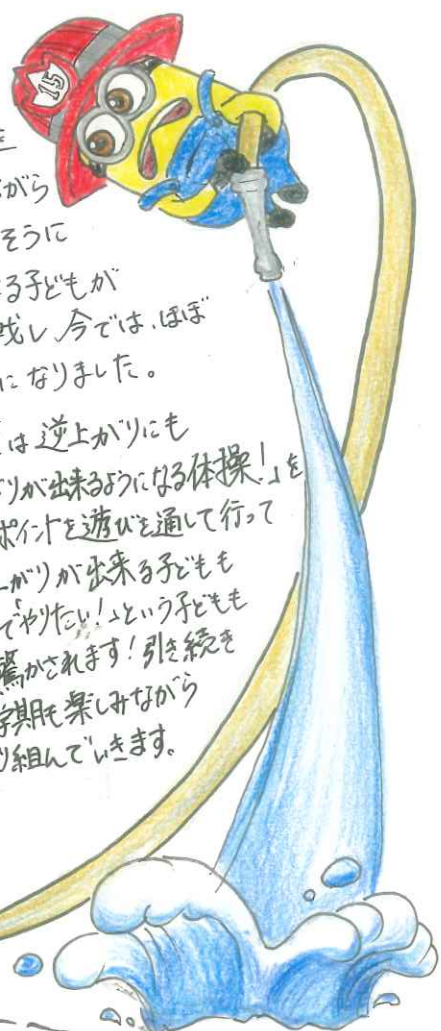 15
がら
そうに
る子どもが
戦し今では、ほぼ
になりました。
は逆上がりにも
がりが出来るようになる体操！」を
ポイントを遊びを通して行って
上がりが出来る子どもも
で「やりたい！」という子どもも
驚かされます！引き続き
学期も楽しみながら
り組んでいきます。